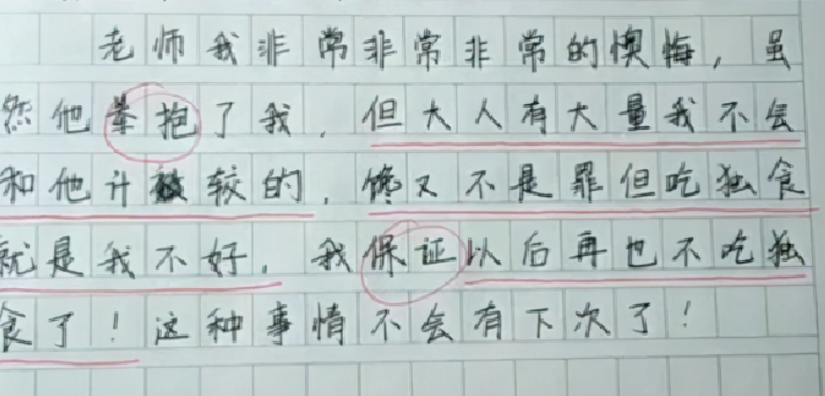 老师我非常非常非常的懊悔，虽
然他举抱了我，但大人有大量我不会
和他计较的，馋又不是罪但吃独食
就是我不好，我保证以后再也不吃独
食了！这种事情不会有下次了！